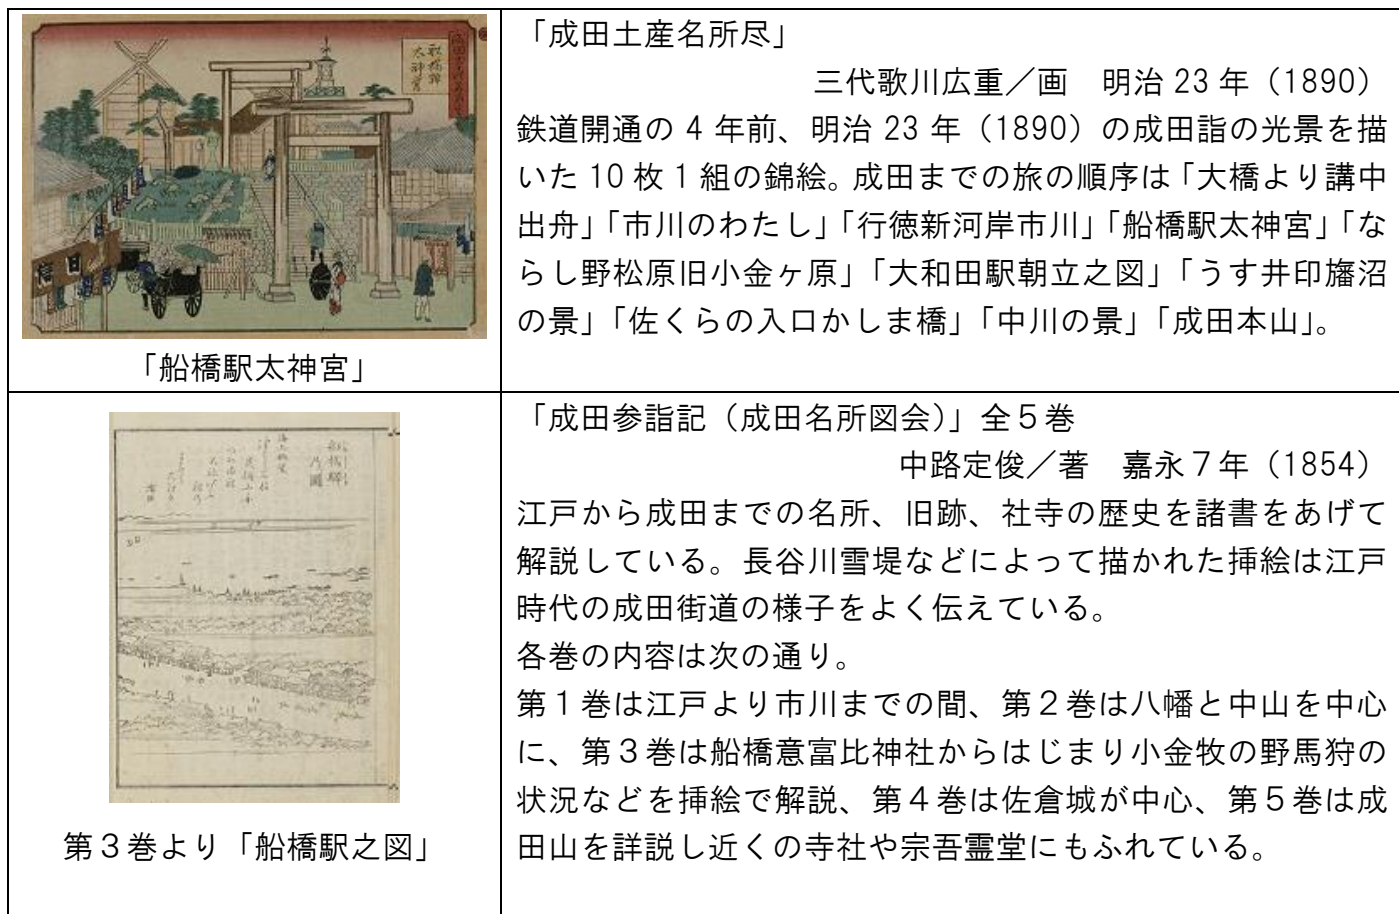 船橋驛
太神宮
「船橋駅太神宮」
「成田土産名所尽」
三代歌川広重／画　明治 23 年（1890）
鉄道開通の 4 年前、明治 23 年（1890）の成田詣の光景を描
いた 10 枚 1 組の錦絵。成田までの旅の順序は「大橋より講中
出舟」「市川のわたし」「行徳新河岸市川」「船橋駅太神宮」「な
らし野松原旧小金ヶ原」「大和田駅朝立之図」「うす井印旛沼
の景」「佐くらの入口かしま橋」「中川の景」「成田本山」。
船橋驛
乃圖
第３巻より「船橋駅之図」
「成田参詣記（成田名所図会）」全５巻
中路定俊／著　嘉永７年（1854）
江戸から成田までの名所、旧跡、社寺の歴史を諸書をあげて
解説している。長谷川雪堤などによって描かれた挿絵は江戸
時代の成田街道の様子をよく伝えている。
各巻の内容は次の通り。
第１巻は江戸より市川までの間、第２巻は八幡と中山を中心
に、第３巻は船橋意富比神社からはじまり小金牧の野馬狩の
状況などを挿絵で解説、第４巻は佐倉城が中心、第５巻は成
田山を詳説し近くの寺社や宗吾霊堂にもふれている。